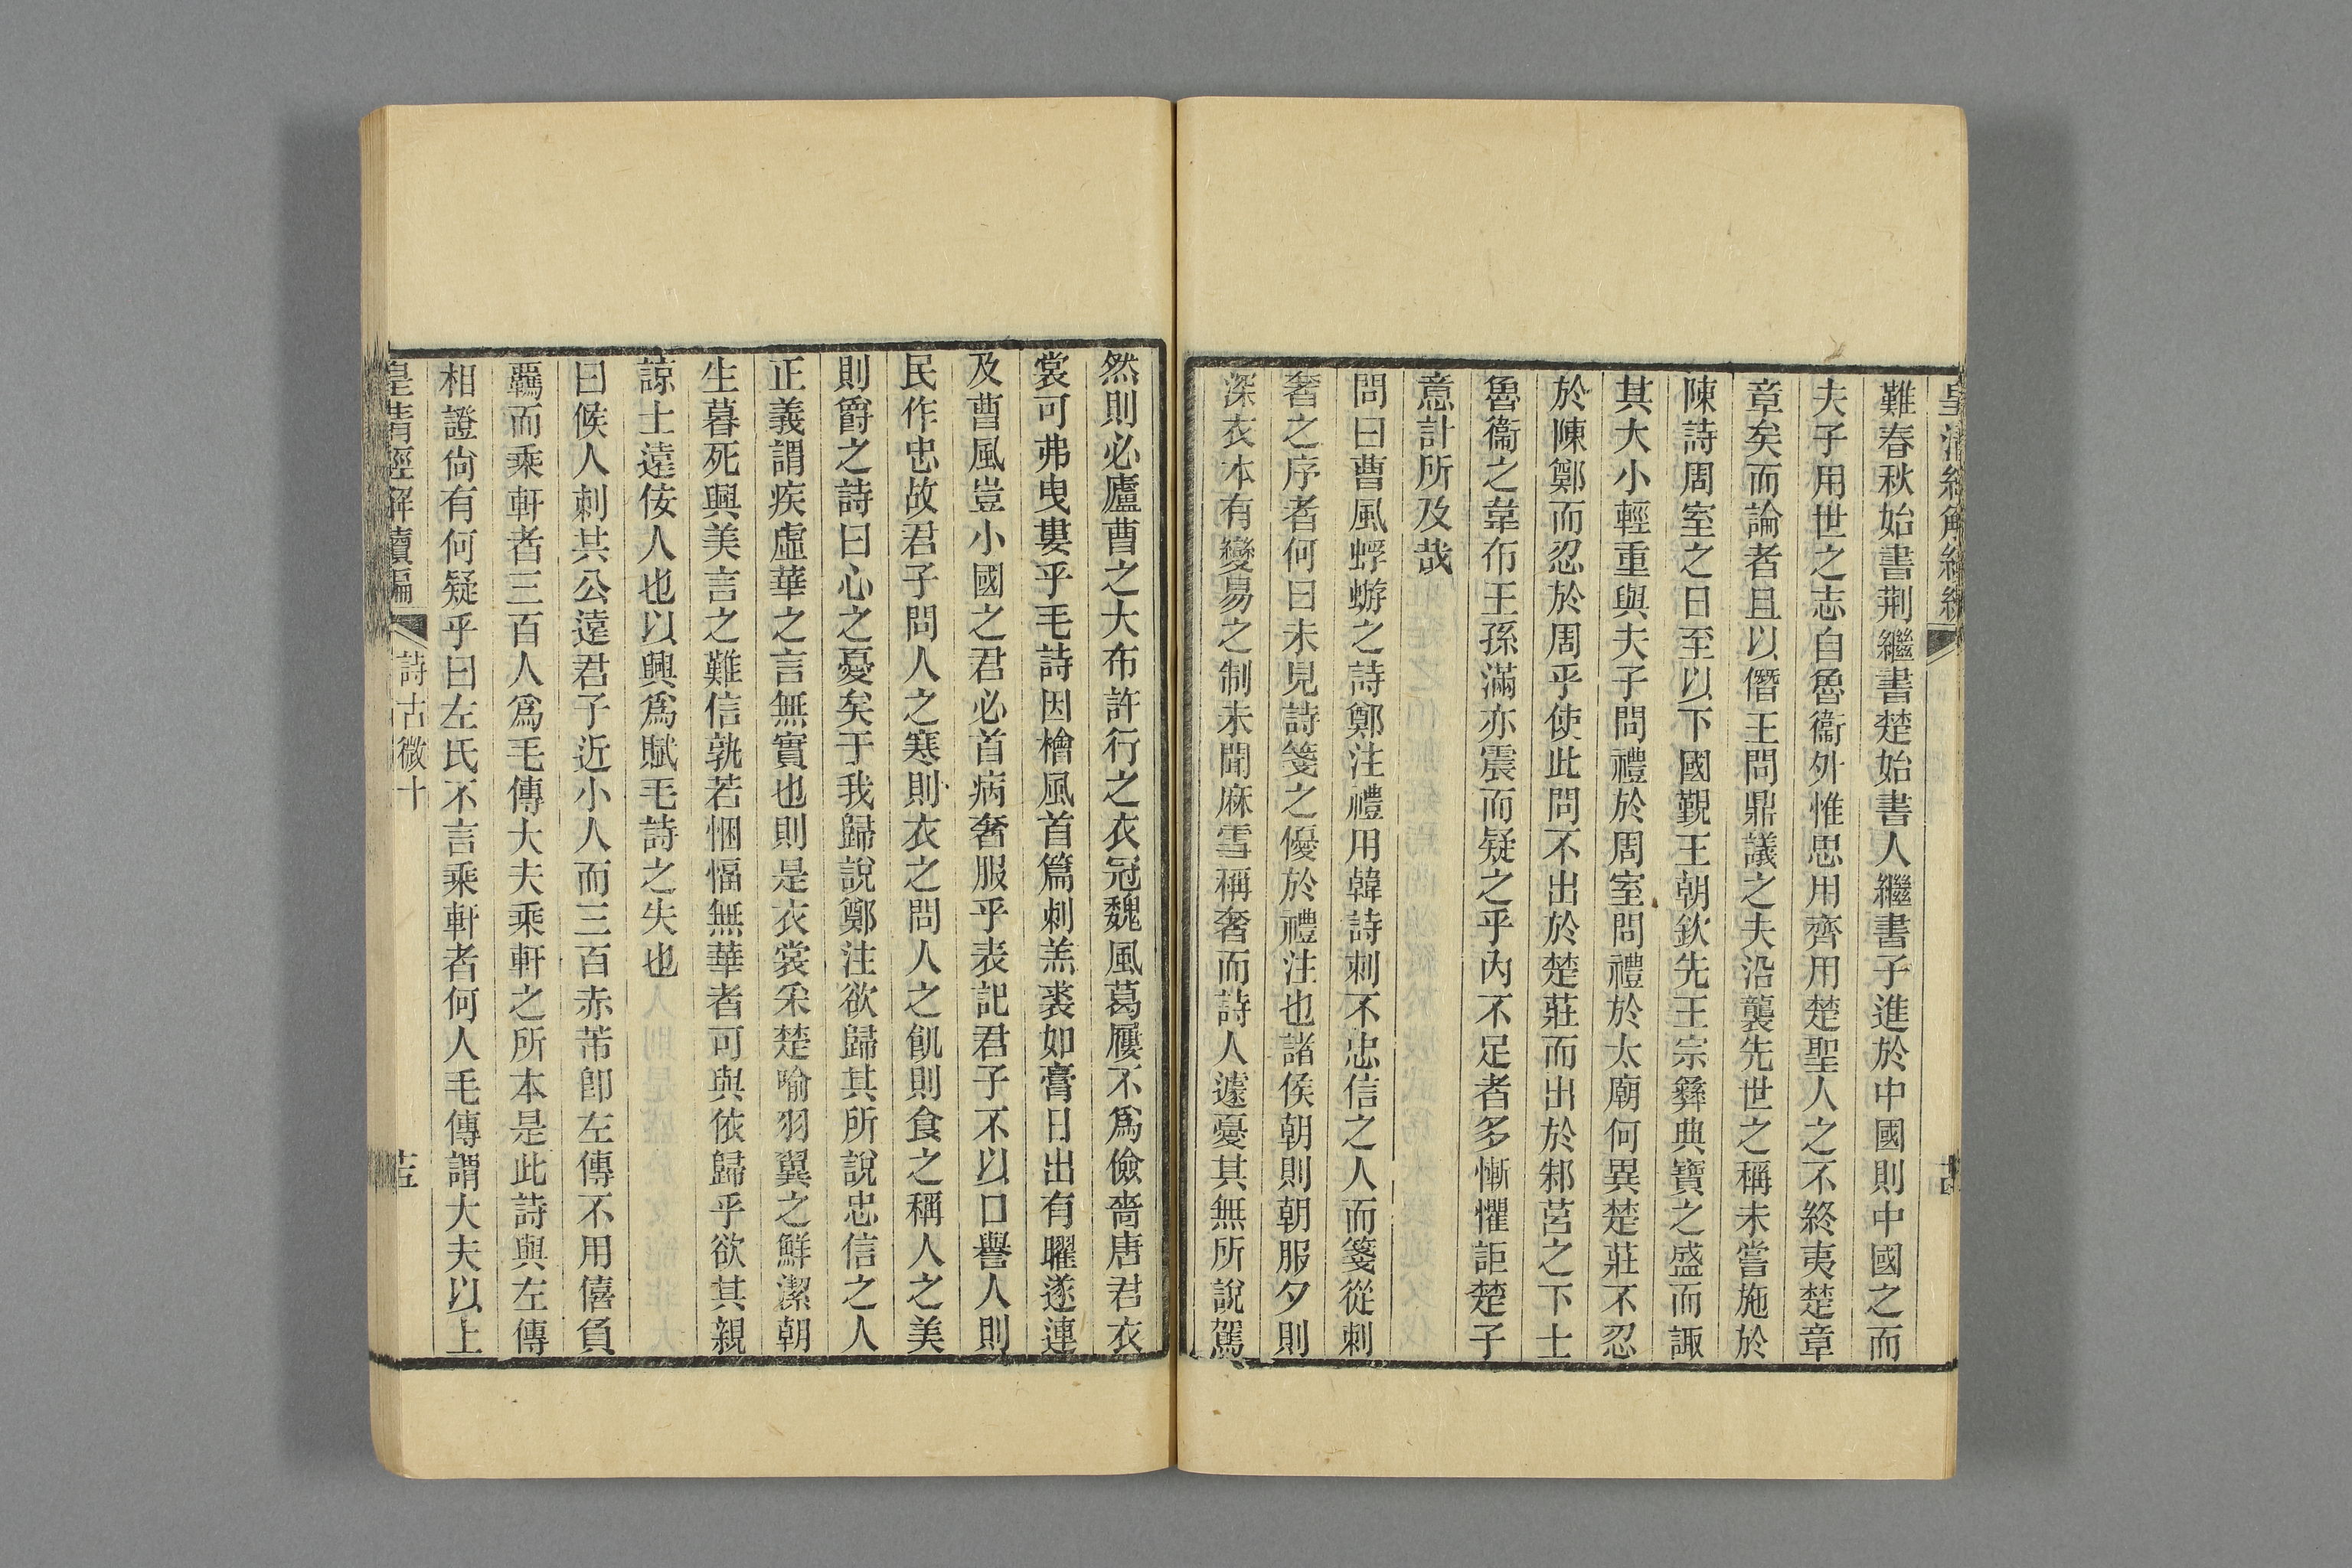 難春秋始書荆繼書楚始書人繼書子進於中國則中國之而
夫子用世之志自魯衞外惟思用齊用楚聖人之不終夷楚章
章矣而論者且以僭王問鼎議之夫沿襲先世之稱未嘗施於
陳詩周室之日至以下國覲王朝欽先王宗彝典寶之盛而諏
其大小輕重與夫子問禮於周室問禮於太廟何異楚莊不忍
於陳鄭而忍於周乎使此問不出於楚莊而出於邾莒之下士
魯衞之韋布王孫滿亦震而疑之乎內不足者多慚懼詎楚子
意計所及哉
問曰曹風蜉蝣之詩鄭注禮用韓詩刺不忠信之人而箋從刺
奢之序者何曰未見詩箋之優於禮注也諸侯朝則朝服夕則
深衣本有變易之制未聞麻雪稱奢而詩人遽憂其無所說駕
然則必廬曹之大布許行之衣冠魏風葛屨不爲儉嗇唐君衣
裳可弗曳婁乎毛詩因檜風首篇刺羔裘如膏日出有曜遂連
及曹風豈小國之君必首病奢服乎表記君子不以口譽人則
民作忠故君子問人之寒則衣之問人之飢則食之稱人之美
則爵之詩曰心之憂矣于我歸說鄭注欲歸其所說忠信之人
正義謂疾虛華之言無實也則是衣裳采楚喻羽翼之鮮潔朝
生暮死興美言之難信孰若悃愊無華者可與依歸乎欲其親
諒士遠佞人也以興爲賦毛詩之失也
曰候人刺共公遠君子近小人而三百赤芾卽左傳不用僖負
羈而乘軒者三百人爲毛傳大夫乘軒之所本是此詩與左傳
相證尙有何疑乎曰左氏不言乘軒者何人毛傳謂大夫以上
皇清經解續編 詩古微十 十五